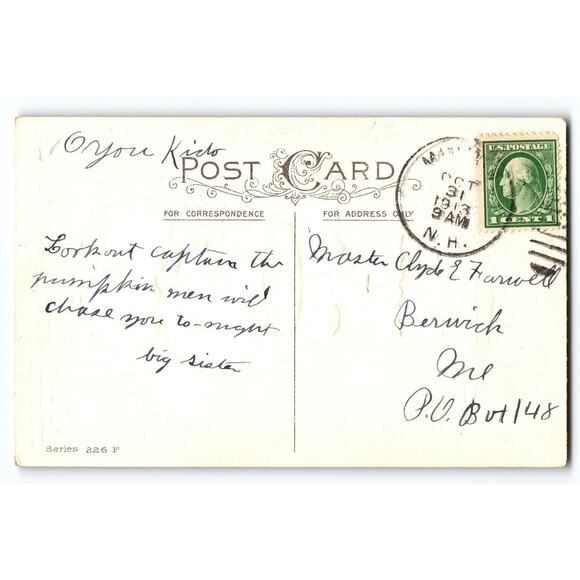 O you Kido
POST CARD
FOR CORRESPONDENCE
FOR ADDRESS ONLY
OCT
31
1913
9 AM
N. H.
U.S. POSTAGE
1 CENT 1
Lookout captain the
pumpkin men will
chase you to-night
big sister
Master Clyde E Farwell
Berwick
Me
P.O. Box 148
Series 226 F